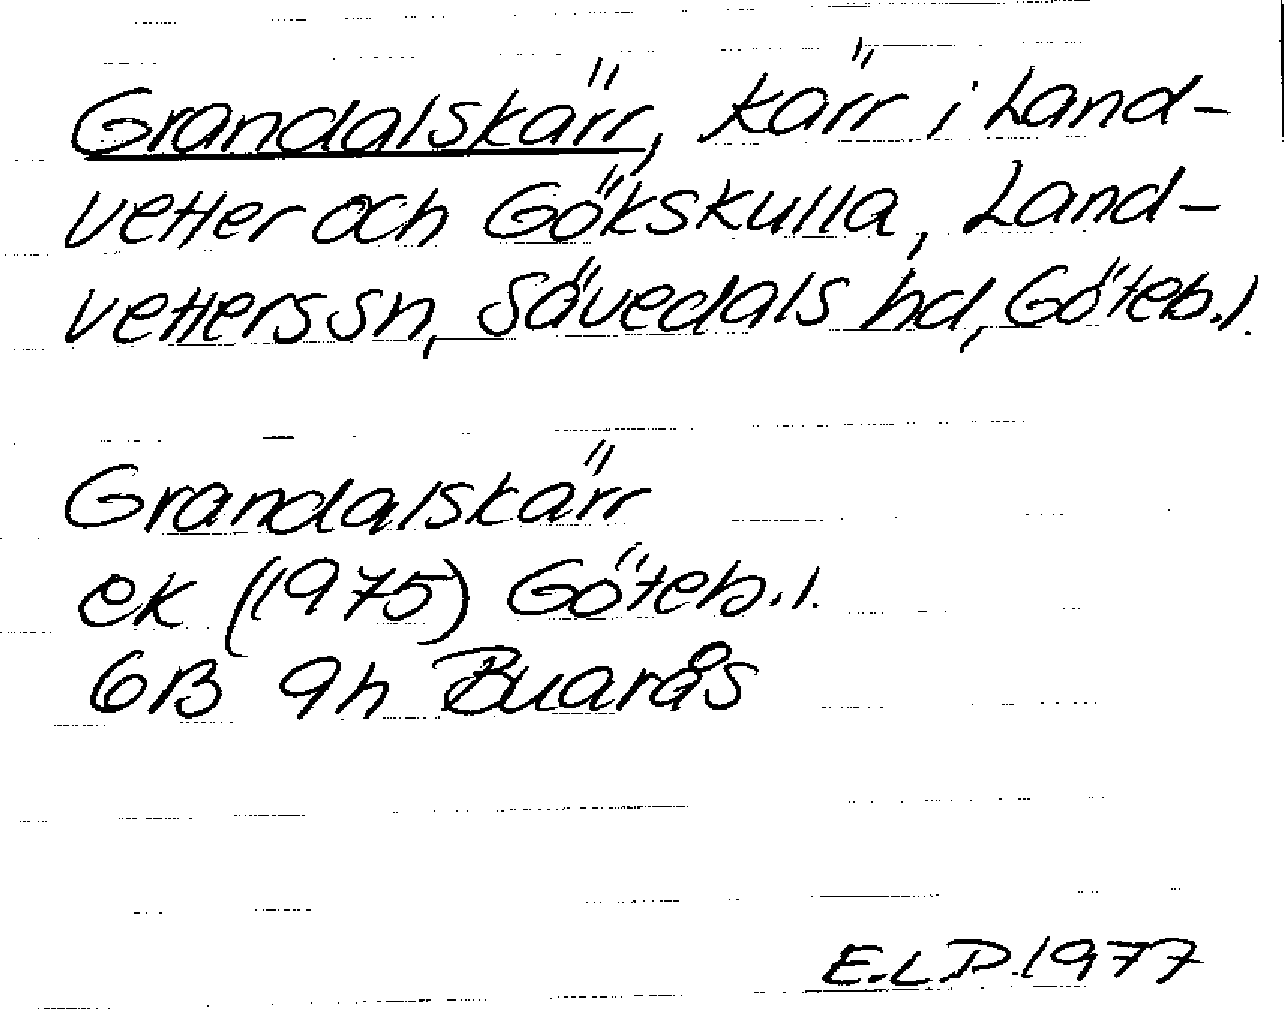 Grandalskärr, kärr i Land-
vetter och Gökskulla, Land-
vetters sn, Sävedals hd, Göteb.l.
Grandalskärr
ek (1975) Göteb.l.
6B 9h Buarås
E.L.D.1977